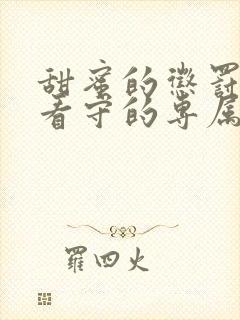 甜蜜的懲罰
看守的專屬
羅四火